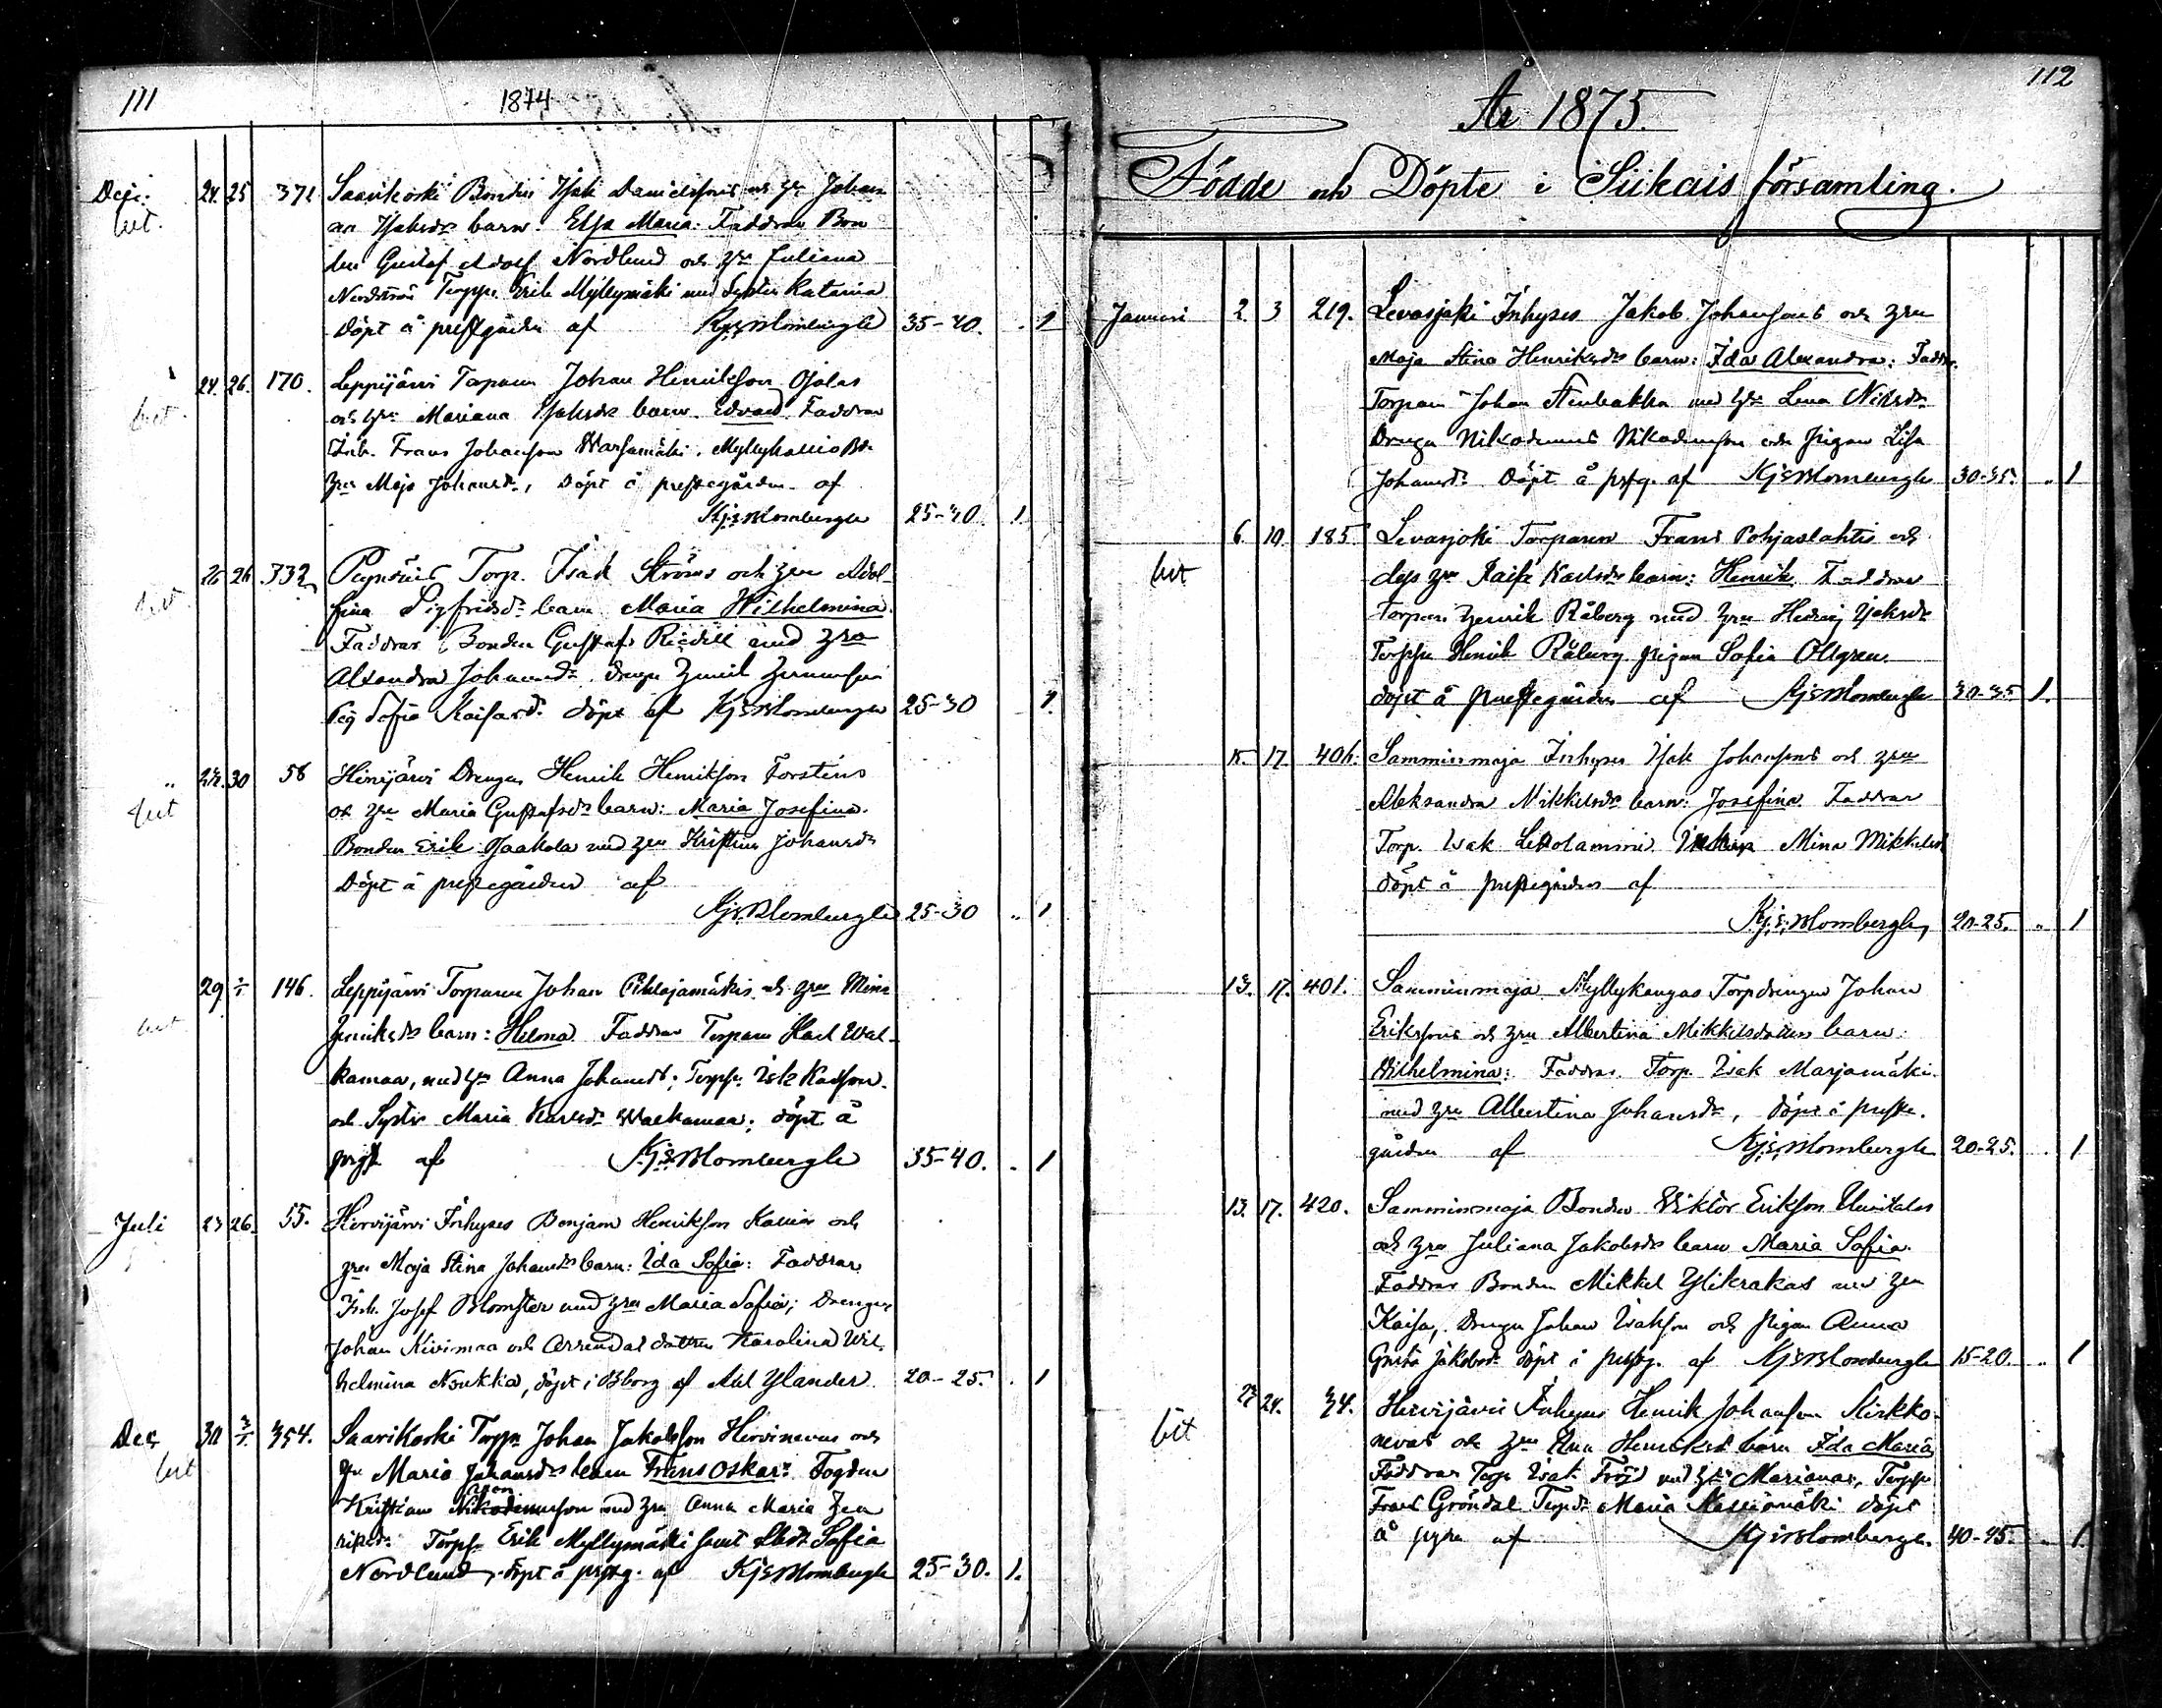 111
1874
Dec. 24. 25 371 Saarikoski Bonden Isak Danielssons och hru Johan
bet. na Isaksdr barn: Elsa Maria: Faddrar Bon
den Gustaf Adolf Nordlund och hru Juliana
Torpp. Erik Myllymäki med Syster Katarina
Döpt å prestgården af KjEBlombergh 35-40. . 1
24. 26. 170. Leppijärvi Torparen Johan Henrikson Ojalas
bet. och hru Mariana Isaksdr barn Edvard Faddrar
Inh. Frans Johanson Harjamäki, Myllykallio
hru Maja Johansdr, Döpt å prestegården af
KjEBlombergh 25-30. 1
26 26 332 Torp. Isak Ströms och hru Adol-
bet. fina Sigfridsdr barn Maria Wilhelmina.
Faddrar Bonden Gustaf med hru
Alexandra Johansdr. drengen
Pig Sofia döpt af KjEBlombergh 25-30 1.
" 28. 30 56 Hirvijärvi Drengen Henrik Henrikson Forstens
bet och hru Maria Gustafsdr barn: Maria Josefina.
Bonden Erik Jaakola med hru Kristina Johansdr
Döpt å prestegården af
KjEBlombergh 25-30 " 1
29 2/1 146. Leppijärvi Torparen Johan Pihlajamäkis och hru Mina
bet Henriksdr barn: Helena Faddrar Torparen Karl Wal-
kamaa, med hru Anna Johansdr; Torpp. Isk Karlson.
och Syster Maria Karlsdr Walkamaa; döpt å
prgd af KjEBlombergh 35-40. . 1
Juli 23 26. 55. Hirvijärvi Inhyses Benjam Henrikson Kallias och
hru Maja Stina Johansdr barn: Ida Sofia: Faddrar
Inh. Josef Blomster med hru Maria Sofia; Drengen
Johan Kivimaa och Arrendat dottren Karolina Wil-
helmina Noukka, döpt i Bborg af Axl Ylander. 20-25. . 1
Dec 30 3/1 354. Saarikoski Torpn Johan Jakobsson Hirvinevas och
bet hru Maria Johansdr barn Frans Oskar: Fogden
Kristian Nikodemuson med hru Anna Maria Hen
riksdr: Torpp. Erik Myllymäki samt Sofia
Nordlund, döpt å prstg. af KjEBlombergh 25-30. 1.
112
År 1875.
Födde och Döpte i Siikais församling.
Januari 2. 3 219. Levasjoki Inhyses Jakob Johansons och hru
Maja Stina Henriksdr barn: Ida Alexandra: Faddr.
Torparen Johan Stenbakka med hru Lena Nilsdr
Drengen Nikodemus Nikodemson och Pigan Lisa
Johansdr. Döpt å prstg. af KjEBlombergh 30-35. " 1
6. 10. 185. Levasjoki Torparen Frans Pohjaslahtis och
bet dess hru Kaisa Karlsdr barn: Henrik. Faddrar
Torparen Henrik Råberg med hru Hedvig Isaksdr
Torppn Henrik Råberg pigan Sofia Ollgren.
döpt å prestegården af KjEBlombergh 30-35 1.
15. 17. 406. Samminmaja Inhyses Isak Johansons och hru
Aleksandra Mikkelsdr barn: Josefina Faddrar
Torp. Isak Leppolammi Mina Mikkelsd
döpt å prestegården af
KjEBlombergh, 20-25. " 1
13. 17. 401. Samminmaja Myllykangas Torpdrengen Johan
Eriksons och hru Albertina Mikkelsdotters barn:
Wilhelmina: Faddrar Torp. Isak Marjamäki
med hru Albertina Johansdr, döpt å preste.
gården af KjEBlombergh 20-25. . 1
13. 17. 420. Samminmaja Bonden Wiktor Erikson Uusitalos
och hru Juliana Jakobsdr barn Maria Sofia.
Faddrar Bonden Mikkel Ylikrakas med hru
Kaisa, Drengen Johan Isakson och pigan Anna
Greta Jakobsdr döpt å prstg. af KjEBlombergh 15-20. " 1
23 24. 34. Hirvijärvi Inhyses Henrik Johanson Kirkko-
bet nevas och hru Ana Henriksd barn Ida Maria
Faddrar Torp Isak Fröjd med hru Mariana, Torppn
Frans Gröndal Torpdr Maria Kalliomäki döpt
å af KjEBlombergh. 40-45. . 1